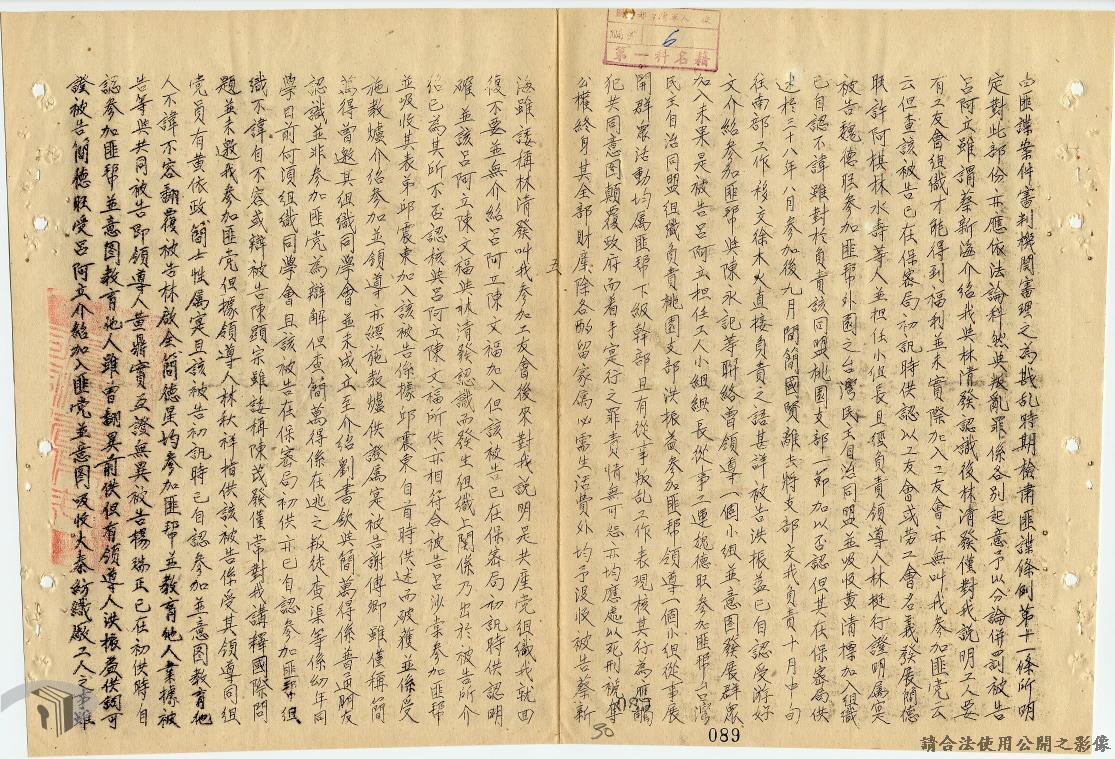 由匪諜案件審判機關審理之為戡乱時期檢肅匪諜條例第十一條所明
定對此部份亦應依法論科然與叛亂罪係各別起意予以分論併罰被告
呂阿立雖謂蔡新海介紹我與林清發認識後林清發僅對我說明工人要
有工友會組織才能得到福利並未實際加入工友會亦無叫我參加匪党云
云但查該被告已在保密局初訊時供認以工友會或勞工會名義發展簡德
旺許阿棋林水壽等人並担任小組長且經負責領導人林挺行證明属实
被告魏德旺參加匪帮外圍之台灣民主自治同盟並吸收黃清標加入組織
已自認不諱雖對於負責該同盟桃園支部一節加以否認但其在保密局供
述於三十八年八月參加後九月間簡國賢離去將支部交我負責十月中旬
往南部工作移交徐木火直接負責之語甚詳被告洪振益已自認受游好
文介紹參加匪帮與陳永記等聯絡曾領導一個小組並意图發展群众
加入未果是被告呂阿立担任工人小組組長從事工運魏德旺參加匪帮台灣
民主自治同盟組織負責桃園支部洪振益參加匪帮領導一個小組從事展
開群眾活動均属匪帮下級幹部且有從事叛乱工作表現核其行為應構
犯共同意图顛覆政府而着手实行之罪責情無可恕亦均應處以死刑褫奪
公權終身其全部財產除各酌留家属必需生活費外均予沒收被告蔡新
海雖諉稱林清發叫我參加工友會後來對我說明是共產党組織我就回
復不要並無介紹呂阿立陳文福加入但該被告已在保密局初訊時供認明
確並該呂阿立陳文福與林清發認識而發生組織上關係乃出於被告所介
紹已為其所不否認核與呂阿立陳文福所供亦相符合被告呂沙棠參加匪
並吸收其表弟邱震東加入該被告係據邱震東自首時供述而破獲並係受
施教爐介紹參加並領導亦經施教爐供證属寔被告謝傳卿雖僅稱簡
萬得曾邀其組織同學會並未成立至介紹劉書欽與簡萬得係普通朋友
認識並非參加匪党為辯解但查簡萬得係在逃之叛徒查渠等係幼年同
學日前何須組織同學會且該被告在保密局初供亦已自認參加匪帮組
織不諱自不容或辯被告陳顕宗雖諉稱陳茂發僅常對我講釋國際問
題並未邀我參加匪党但據領導人林秋祥指供該被告係受其領導同組
党員有黃依政簡士性属寔且該被告初訊時已自認參加並意图教育他
人不諱不容翻覆被告林啟全簡德星均參加匪帮並教育他人業據被
告等與共同被告即領導人黃鼎實互證無異被告楊瑞正已在初供時自
認參加匪帮並意图教育他人雖曾翻異前供但有領導人洪振益供詞可
證被告簡德旺受呂阿立介紹加入匪党並意图吸收大秦紡織廠工人之事雖
五
編號
6
第一科名籍
085
50
089
請合法使用公開之影像